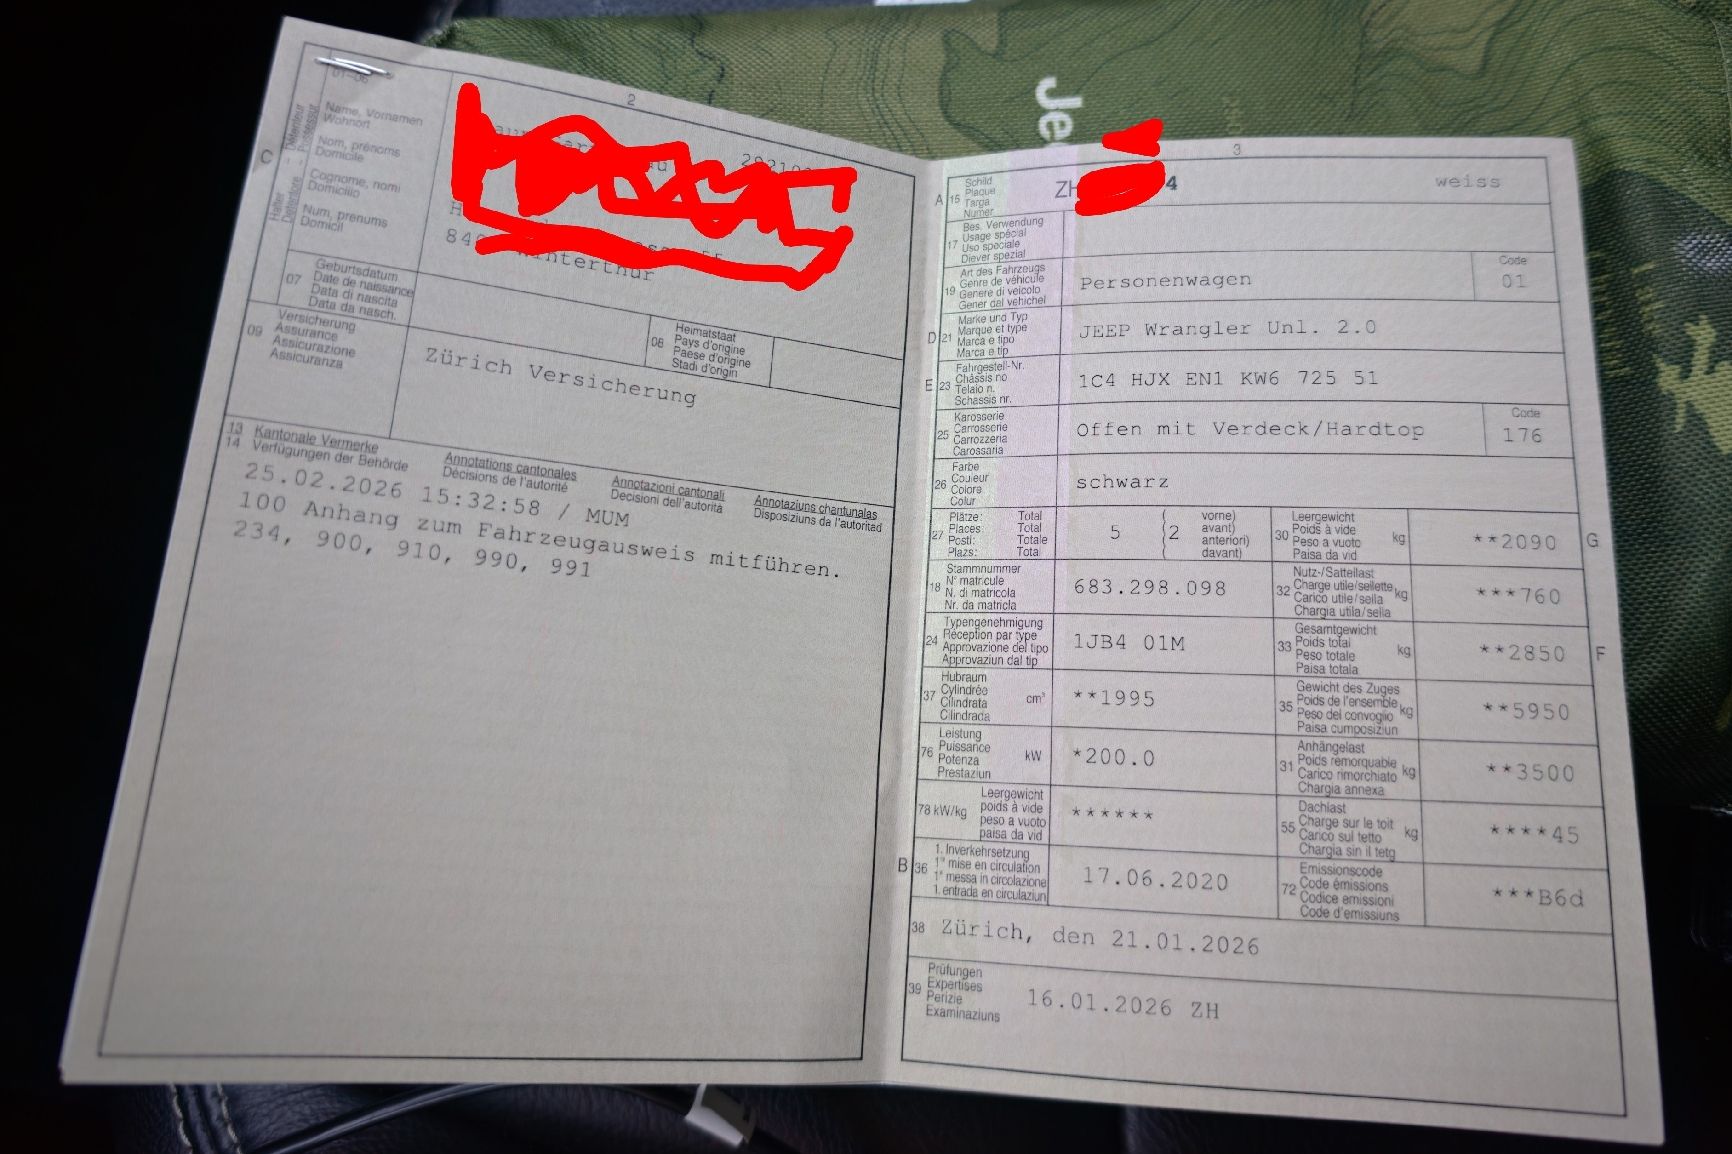 2
01-06
C
Halter
Détenteur
Detentore
Possessur
Name, Vornamen
Wohnort
Nom, prénoms
Domicile
Cognome, nomi
Domicilio
Num, prenums
Domicil
Winterthur
07
Geburtsdatum
Date de naissance
Data di nascita
Data da nasch.
08
Heimatstaat
Pays d'origine
Paese d'origine
Stadi d'origin
09
Versicherung
Assurance
Assicurazione
Assicuranza
Zürich Versicherung
13 Kantonale Vermerke
14 Verfügungen der Behörde
Annotations cantonales
Décisions de l'autorité
Annotazioni cantonali
Decisioni dell'autorità
Annotaziuns chantunalas
Disposiziuns da l'autoritad
25.02.2026 15:32:58 / MUM
100 Anhang zum Fahrzeugausweis mitführen.
234, 900, 910, 990, 991
Jee
3
A 15
Schild
Plaque
Targa
Numer
ZH 4 weiss
17
Bes. Verwendung
Usage spécial
Uso speciale
Diever spezial
19
Art des Fahrzeugs
Genre de véhicule
Genere di veicolo
Gener dal vehichel
Personenwagen
Code
01
D 21
Marke und Typ
Marque et type
Marca e tipo
Marca e tip
JEEP Wrangler Unl. 2.0
E 23
Fahrgestell-Nr.
Châssis no
Telaio n.
Schassis nr.
1C4 HJX EN1 KW6 725 51
25
Karosserie
Carrosserie
Carrozzeria
Carossaria
Offen mit Verdeck/Hardtop
Code
176
26
Farbe
Couleur
Colore
Colur
schwarz
27
Plätze: Total
Places: Total
Posti: Totale
Plazs: Total
5 ( 2
vorne)
avant)
anteriori)
davant)
30
Leergewicht
Poids à vide
Peso a vuoto
Paisa da vid
kg
**2090 G
18
Stammnummer
N° matricule
N. di matricola
Nr. da matricla
683.298.098
32
Nutz-/Sattellast
Charge utile/sellette
Carico utile/sella
Chargia utila/sella
kg
***760
24
Typengenehmigung
Réception par type
Approvazione del tipo
Approvaziun dal tip
1JB4 01M
33
Gesamtgewicht
Poids total
Peso totale
Paisa totala
kg
**2850 F
37
Hubraum
Cylindrée
Cilindrata
Cilindrada
cm³
**1995
35
Gewicht des Zuges
Poids de l'ensemble
Peso del convoglio
Paisa cumposiziun
kg
**5950
76
Leistung
Puissance
Potenza
Prestaziun
kW
*200.0
31
Anhängelast
Poids remorquable
Carico rimorchiato
Chargia annexa
kg
**3500
78 kW/kg
Leergewicht
poids à vide
peso a vuoto
paisa da vid
******
55
Dachlast
Charge sur le toit
Carico sul tetto
Chargia sin il tetg
kg
****45
B 36
1. Inverkehrsetzung
1re mise en circulation
1a messa in circolazione
1. entrada en circulaziun
17.06.2020
72
Emissionscode
Code émissions
Codice emissioni
Code d'emissiuns
***B6d
38 Zürich, den 21.01.2026
39
Prüfungen
Expertises
Perizie
Examinaziuns
16.01.2026 ZH